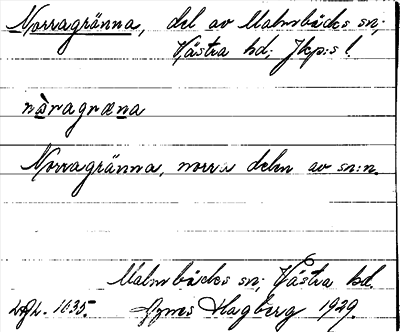 Norragränna, del av Malmbäcks sn;
Västra hd; Jkp:s l.
nòragræna
Norragränna, norra delen av sn:n.
Malmbäcks sn; Västra hd.
1035. Agnes Hagberg 1929.